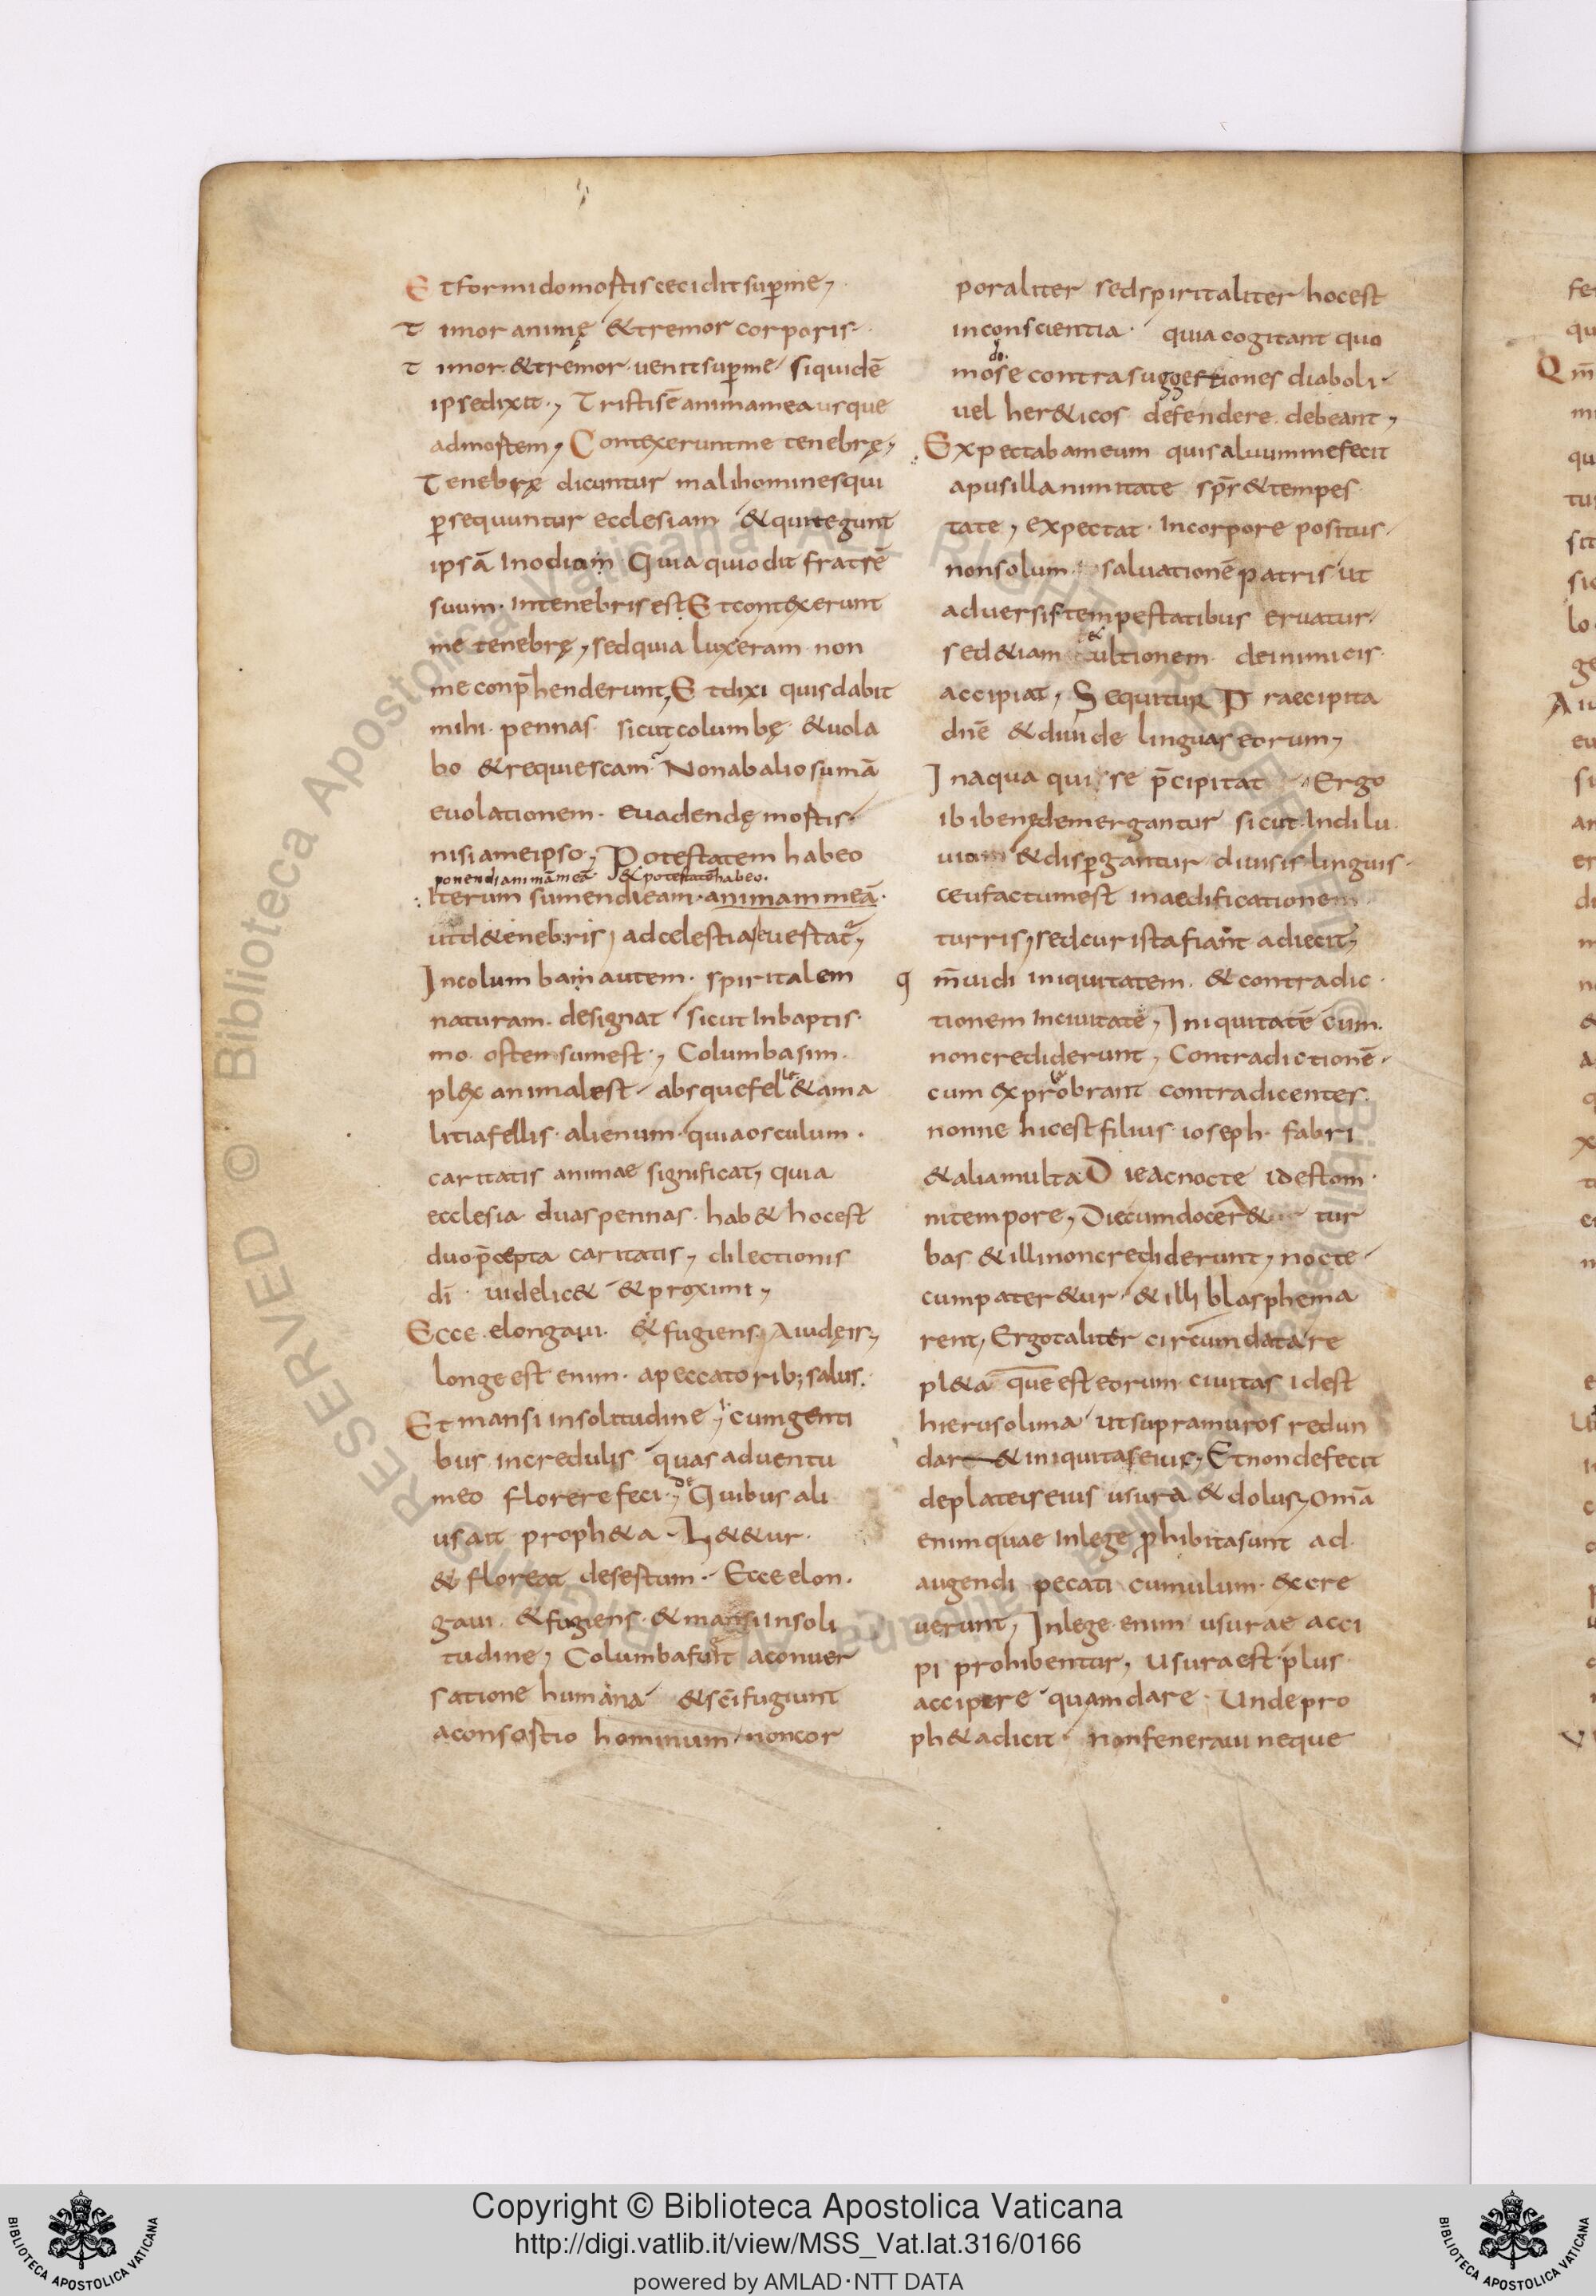 Et formido mortis cecidit sup̄ me,
Timor animę & tremor corporis.
Timor & tremor uenit sup̄ me. siquidē
ipse dixit., Tristis ē anima mea usque
ad mortem, Contexerunt me tenebrę,
Tenebrę dicuntur mali homines qui
ꝑsequuntur ecclesiam & qui tegunt
ipsā In odium Quia qui odit fratrē
suum. in tenebris est Et contexerunt
me tenebrę, sed quia lux eram non
me conp̄henderunt, Et dixi quis dabit
mihi pennas sicut columbę & uola
bo & requiescam. Non ab alio sumā
euolationem. euadendę mortis.
nisi a me ipso., Potestatem habeo
ponendi animā meā & potestatē habeo.
Iterum sumendi eam. animam meā.
ut de tenebris, ad celestia euertat,
In columbam autem. spiritalem
naturam. designat sicut In baptis
mo ostensum est., Columba sim
plex animal est. absque felle & a ma
litia fellis. alienum. quia osculum.
caritatis animae significat, quia
ecclesia duas pennas. hab& hoc est
duo p̄cepta caritatis, dilectionis
dī uidelic& & proximi,
Ecce elongaui. & fugiens. A iudęis,
longe est enim. a peccatorib; salus.
Et mansi in solitudine, cum genti
bus incredulis quas aduentu
meo florere feci., de Quibus ali
us ait proph&a. L&&ur.
& floreat desertum. Ecce elon
gaui. & fugiens. & mansi In soli
tudine, Columba fugit a conuer
satione humana & sc̄i fugiunt
a consortio hominum. non cor
poraliter sed spiritaliter hoc est
in conscientia. quia cogitant quo
modo se contra suggestiones diaboli.
uel her&icos defendere debeant,
Expectabam eum qui saluum me fecit
a pusillanimitate sp̄r & tempes
tate, expectat. In corpore positus.
non solum. saluationē patris ut
aduersis tempestatibus eruatur.
sed &iam & ultionem de inimicis
accipiat, Sequitur Praecipita
dn̄e & diuide linguas eorum,
In aqua qui se p̄cipitat Ergo
ibi bene demergantur sicut In dilu
uiam & disꝑgantur diuisis linguis.
ceu factum est in aedificationem
turris, sed cur ista fiant adiecit,
qm̄ uidi iniquitatem. & contradic
tionem In ciuitate, Iniquitatē cum.
non crediderunt, Contradictionē.
cum exprobrant contradicentes
nonne hic est filius ioseph. fabri
& alia multa Die ac nocte id est om
ni tempore, Die cum docer& tur
bas & illi non crediderunt, nocte
cum pater&ur. & illi blasphema
rent, Ergo taliter circumdata re
pl&a que est eorum ciuitas id est
hierusolima ut supra muros redun
dar& iniquitas eius. Et non defecit
de plateis eius usura & dolus, Omā
enim quae In lege ꝓhibita sunt ad
augendi pecati cumulum. excre
uerunt, In lege enim usurae acci
pi prohibentur, Usura est plus
accipere quam dare. Unde pro
ph&a dicit. non feneraui neque
Copyright © Biblioteca Apostolica Vaticana
http://digi.vatlib.it/view/MSS_Vat.lat.316/0166
powered by AMLAD·NTT DATA